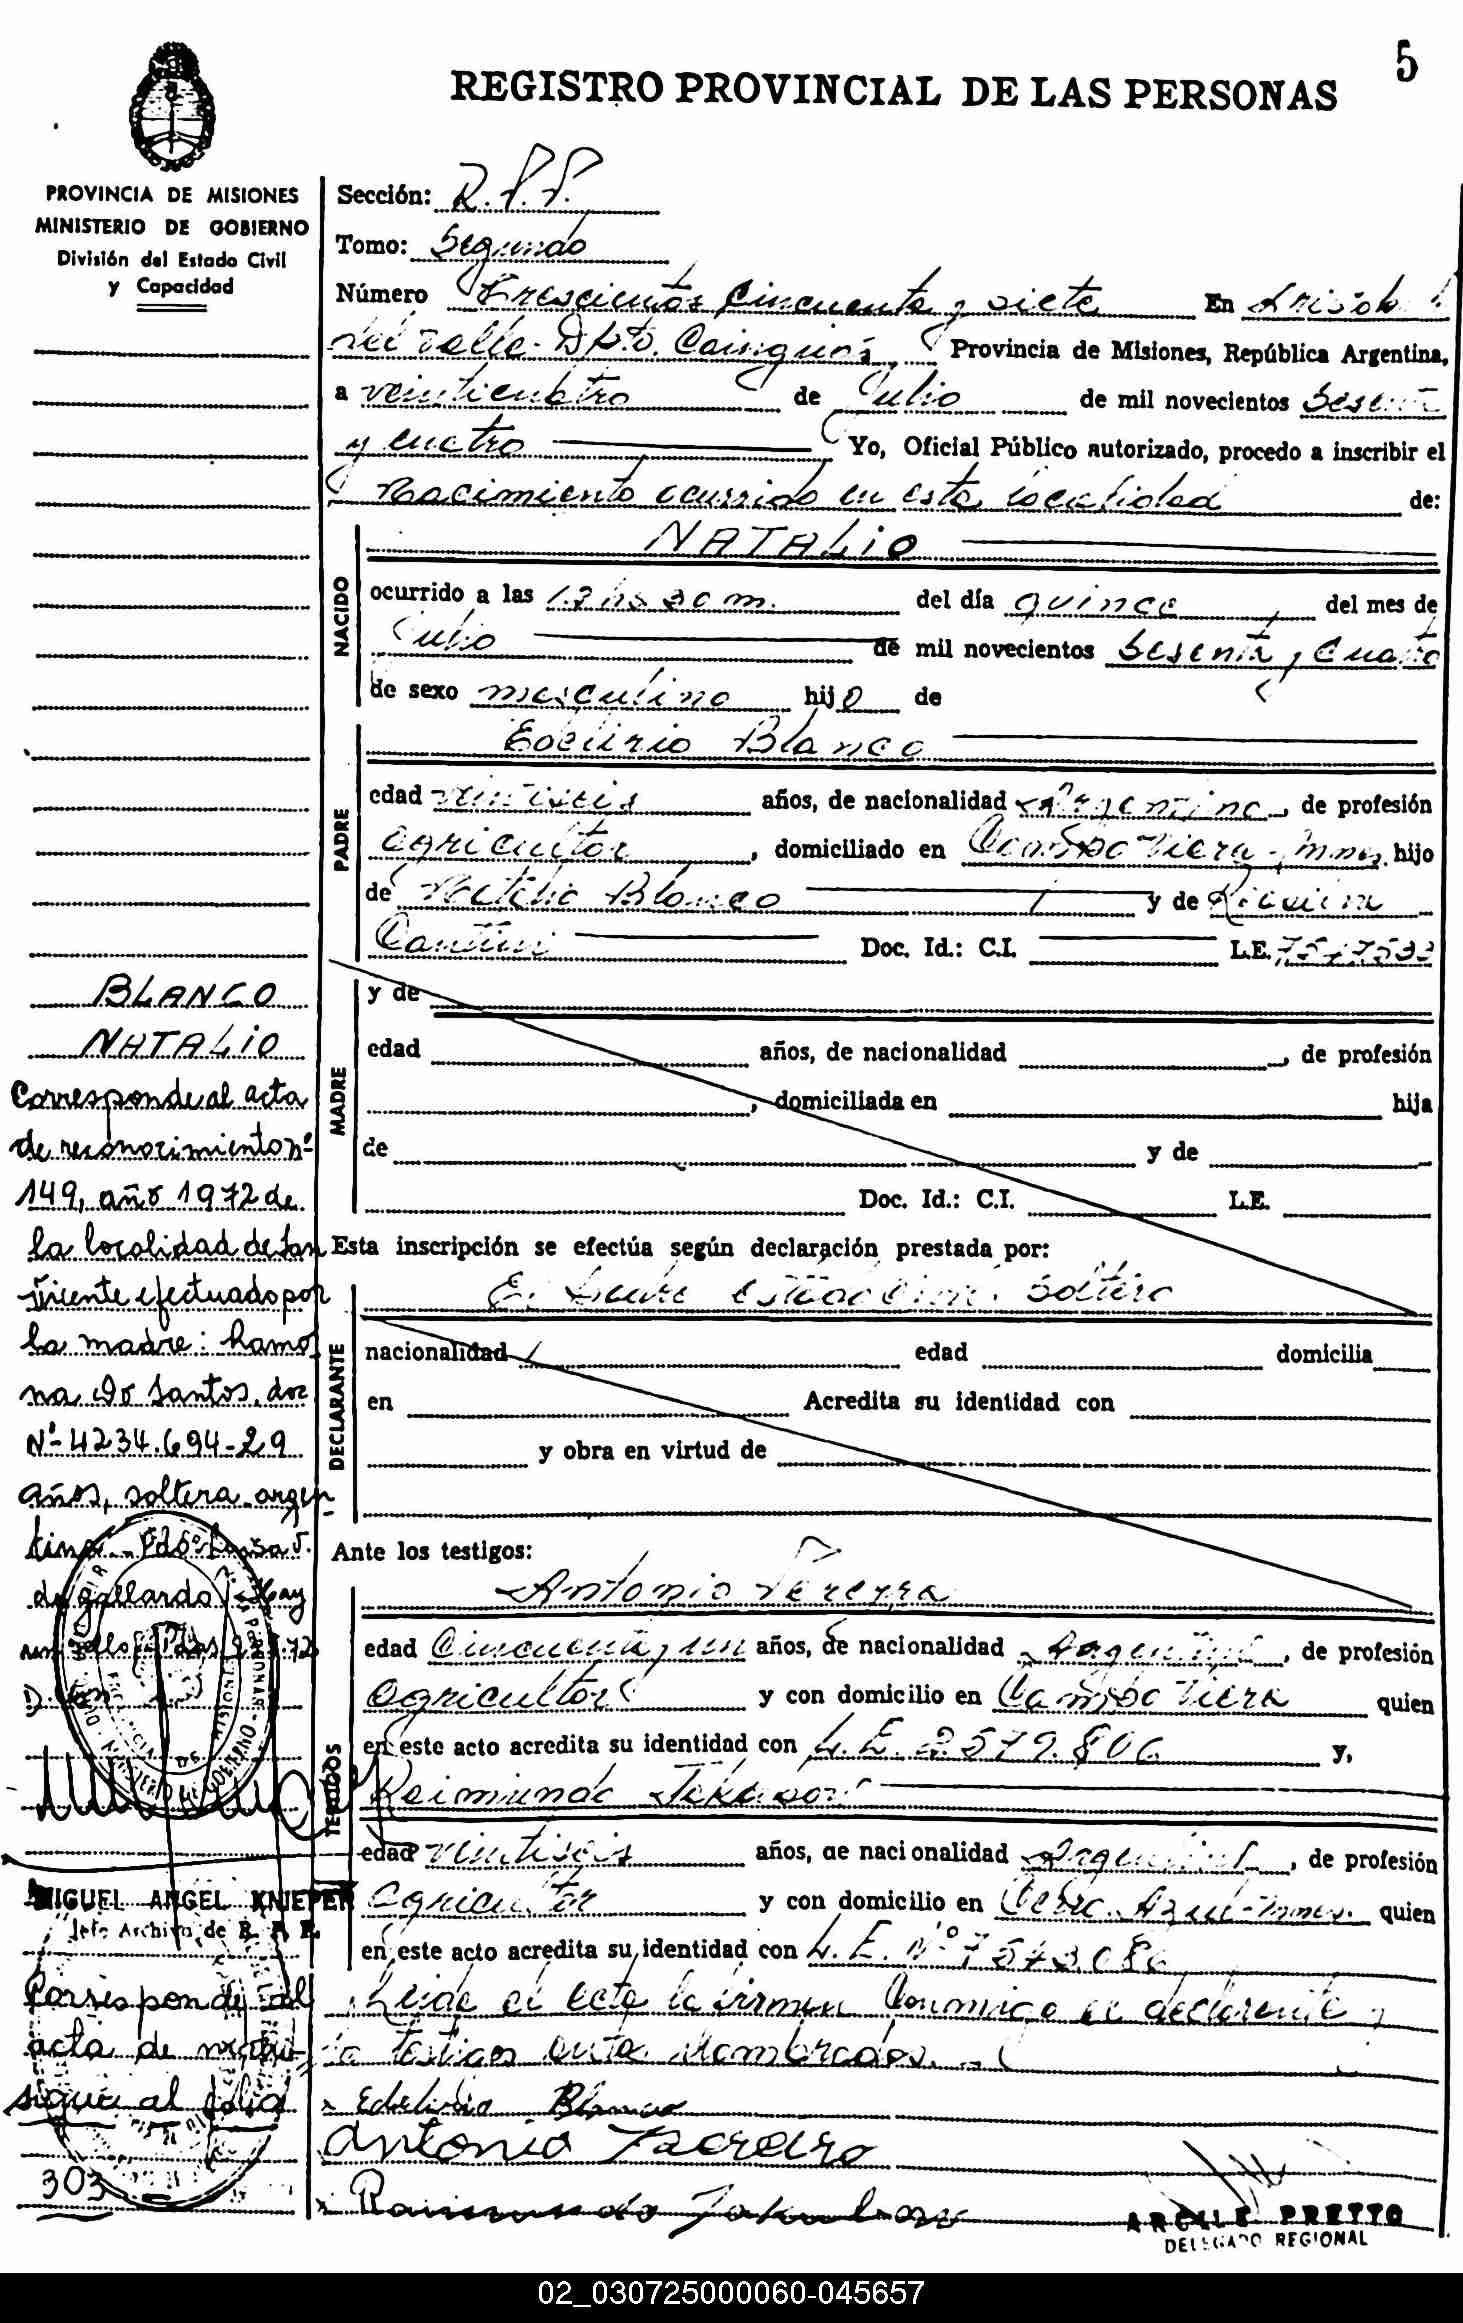 5
REGISTRO PROVINCIAL DE LAS PERSONAS
PROVINCIA DE MISIONES
MINISTERIO DE GOBIERNO
División del Estado Civil
y Capacidad
Sección: R.P.P.
Tomo: Segundo
Número Trescientos cincuenta y siete En Aristobulo
del Valle - Dpto. Cainguás, Provincia de Misiones, República Argentina,
a veinticuatro de Julio de mil novecientos Sesenta
y cuatro Yo, Oficial Público autorizado, procedo a inscribir el
Nacimiento ocurrido en esta localidad de:
NACIDO
NATALIO
ocurrido a las 13 hs 30 m. del día quince del mes de
Julio de mil novecientos Sesenta y Cuatro
de sexo masculino hijo de
PADRE
Edelirio Blanco
edad veintiseis años, de nacionalidad Argentina, de profesión
agricultor, domiciliado en Campo Viera - Mnes. hijo
de Natalio Blanco y de
Doc. Id.: C.I. L.E. 7.547.533
MADRE
y de
edad años, de nacionalidad , de profesión
, domiciliada en hija
de y de
Doc. Id.: C.I. L.E.
Esta inscripción se efectúa según declaración prestada por:
DECLARANTE
El Padre estado civil Soltero
nacionalidad edad domicilia
en Acredita su identidad con
y obra en virtud de
Ante los testigos:
TESTIGOS
Antonio Pereyra
edad Cincuenta y un años, de nacionalidad Argentina, de profesión
Agricultor y con domicilio en Campo Viera quien
en este acto acredita su identidad con L.E. 2.579.806 y,
Raimundo
edad veintiseis años, de nacionalidad Argentina, de profesión
Agricultor y con domicilio en Cerro Azul - Mnes. quien
en este acto acredita su identidad con L.E. Nº 7.543.086
Leida el acta la firman Conmigo el declarante y
lo testigos ante Nombrados.
Edelirio Blanco
Antonio
Raimundo
ARGILE PRETTO
DELEGADO REGIONAL
BLANCO
NATALIO
Corresponde al acta
de reconocimiento nº
149, año 1972 de
la localidad de San
Vicente efectuado por
la madre: Ramo
na Do Santos, doc
Nº 4234.694-29
años, soltera, argen
tina - Fdo: Luisa J.
de Gallardo. Hay
un sello
MIGUEL ANGEL KNIEPER
Jefe Archivo de R. P. P.
Corresponde al
acta de
sigue al folio
303
02_030725000060-045657